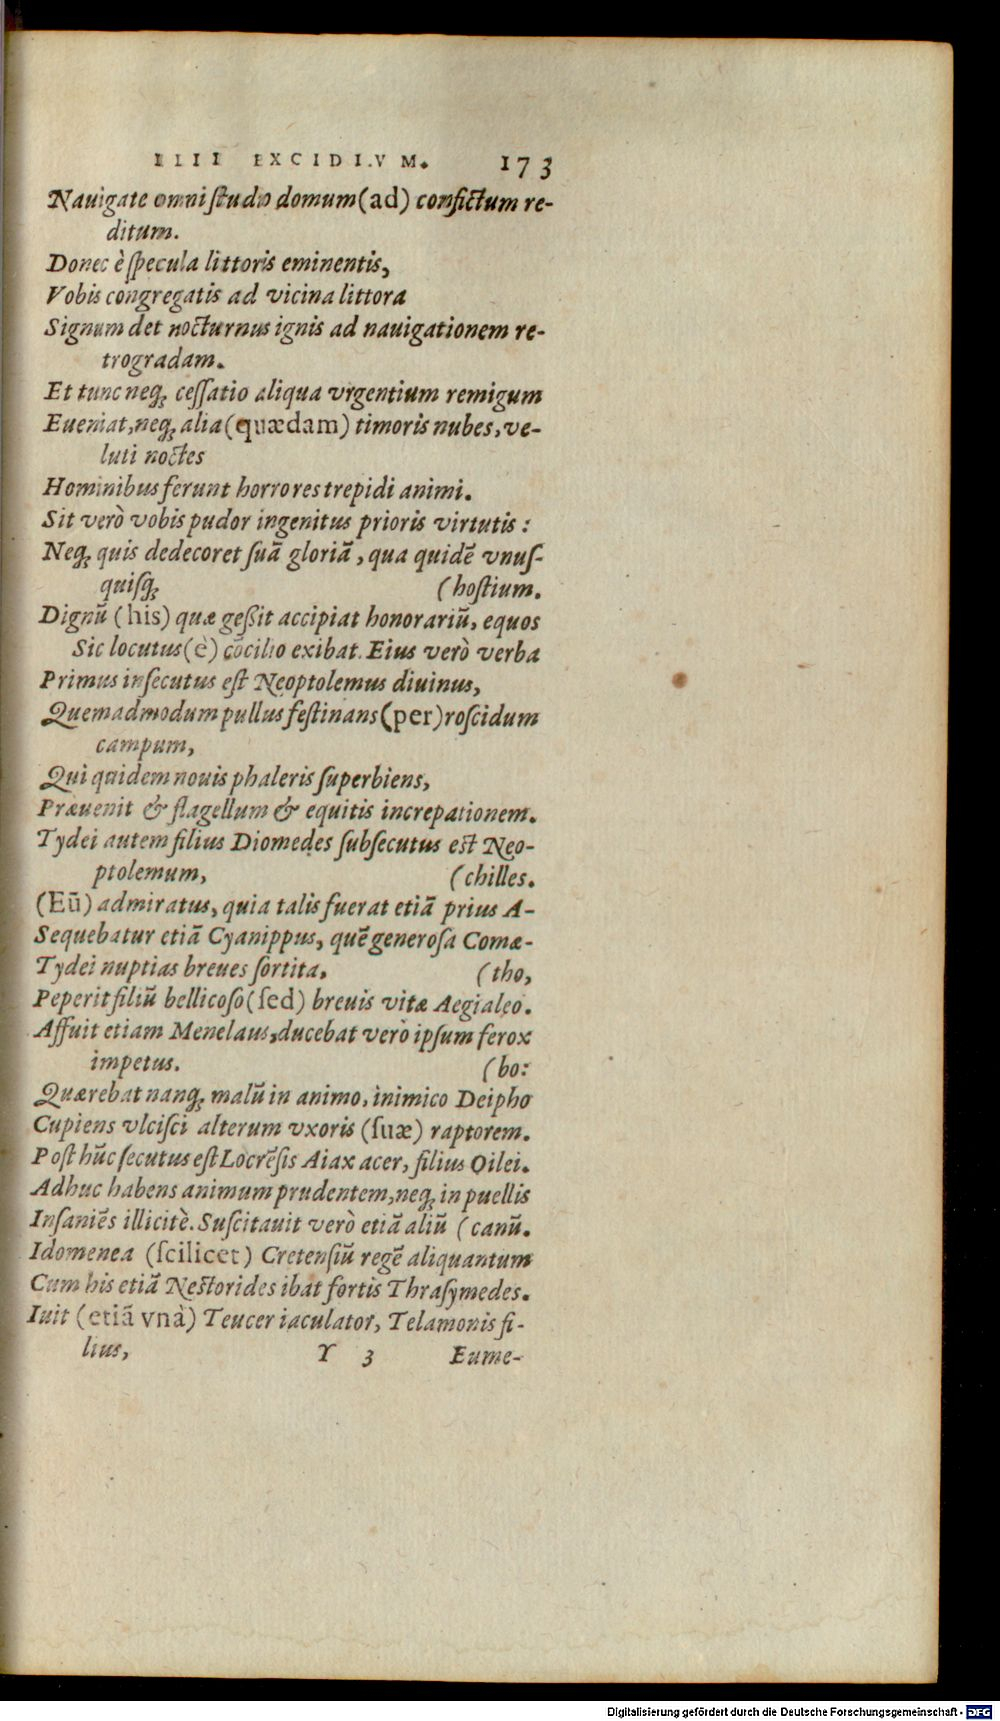 IIII EXCIDIVM. 173
Nauigate omni ſtudio domum (ad) confictum re-
ditum.
Donec è ſpecula littoris eminentis,
Vobis congregatis ad vicina littora
Signum det nocturnus ignis ad nauigationem re-
trogradam.
Et tunc neq; ceſſatio aliqua vrgentium remigum
Eueniat, neq; alia (quædam) timoris nubes, ve-
luti noctes
Hominibus ferunt horrores trepidi animi.
Sit verò vobis pudor ingenitus prioris virtutis:
Neq; quis dedecoret ſuā gloriā, qua quidē vnuſ-
quiſq; (hoſtium.
Dignū (his) quæ geßit accipiat honorariū, equos
Sic locutus (è) cōcilio exibat. Eius verò verba
Primus inſecutus eſt Neoptolemus diuinus,
Quemadmodum pullus feſtinans (per) roſcidum
campum,
Qui quidem nouis phaleris ſuperbiens,
Præuenit & flagellum & equitis increpationem.
Tydei autem filius Diomedes ſubſecutus eſt Neo-
ptolemum, (chilles.
(Eū) admiratus, quia talis fuerat etiā prius A-
Sequebatur etiā Cyanippus, quē generoſa Comæ-
Tydei nuptias breues ſortita, (tho,
Peperit filiū bellicoſo (ſed) breuis vitæ Aegialeo.
Affuit etiam Menelaus, ducebat verò ipſum ferox
impetus. (bo:
Quærebat nanq; malū in animo, inimico Deipho
Cupiens vlciſci alterum vxoris (ſuæ) raptorem.
Poſt hūc ſecutus eſt Locrēſis Aiax acer, filius Oilei.
Adhuc habens animum prudentem, neq; in puellis
Inſaniēs illicitè. Suſcitauit verò etiā aliū (canū.
Idomenea (ſcilicet) Cretenſiū regē aliquantum
Cum his etiā Neſtorides ibat fortis Thraſymedes.
Iuit (etiā vnà) Teucer iaculator, Telamonis fi-
lius, Y 3 Eume-
Digitalisierung gefördert durch die Deutsche Forschungsgemeinschaft - DFG